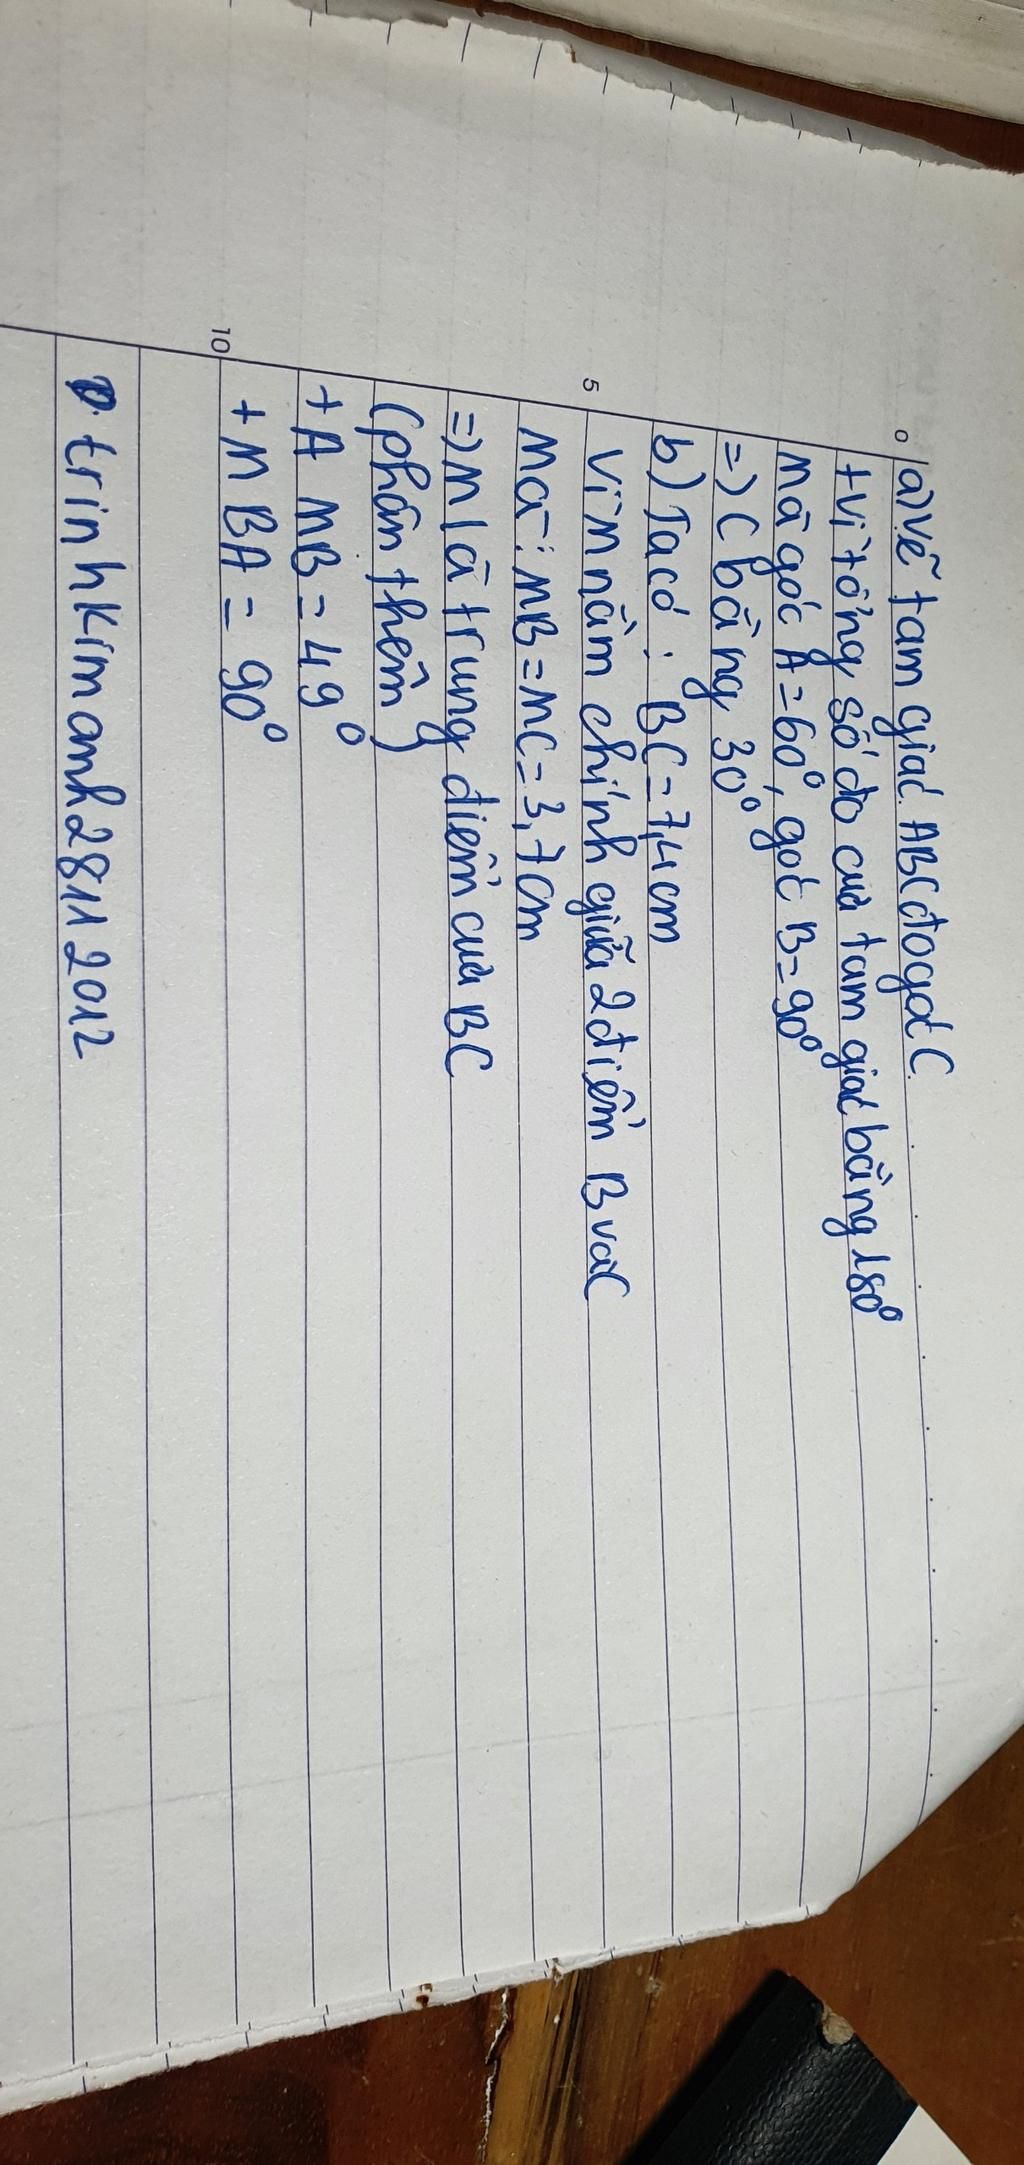 0
a) Vẽ tam giác ABC đo góc C
+ Vì tổng số đo của tam giác bằng 180°
mà góc A = 60°, góc B = 90°
=> C bằng 30°
b) Ta có : BC = 7,4 cm
5
Vì M nằm chính giữa 2 điểm B và C
Mà : MB = MC = 3,7 cm
=> M là trung điểm của BC
(phần thêm)
+ A MB = 49°
10
+ M BA = 90°
trinhkimanh28112012